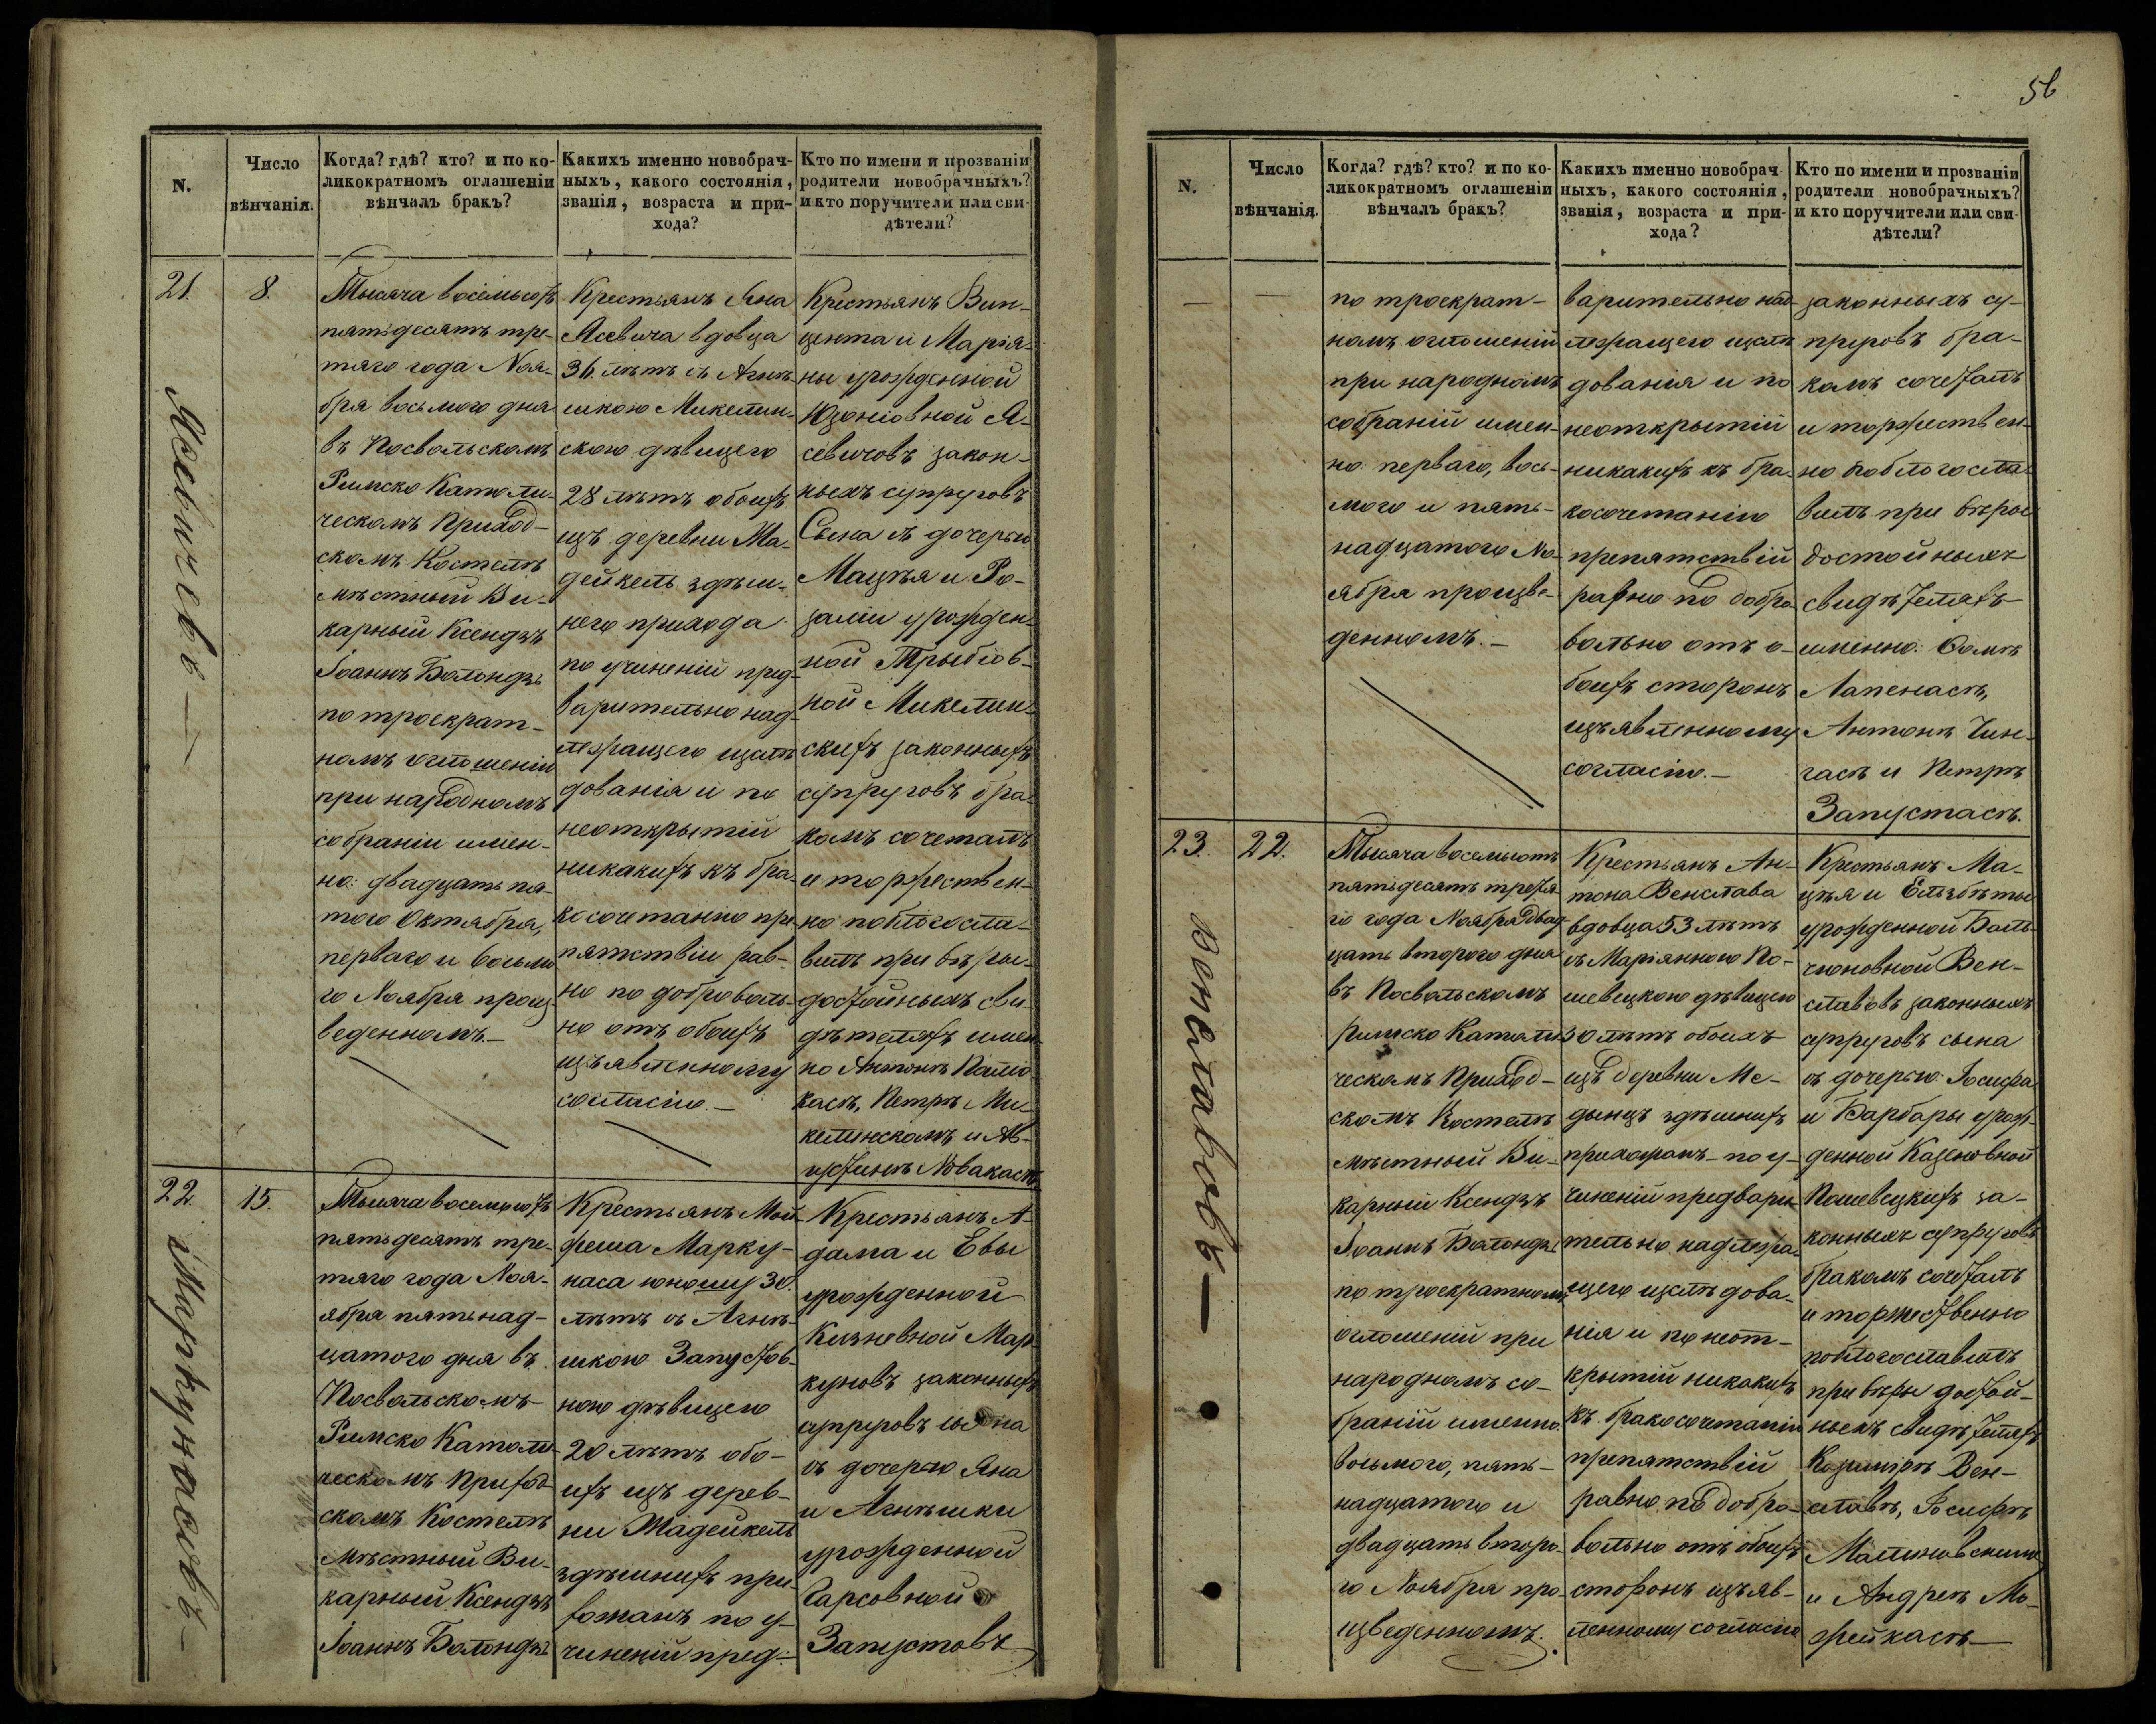 56
N.
Число
вѣнчанія.
Когда? гдѣ? кто? и по ко-
ликократномъ оглашеніи
вѣнчалъ бракъ?
Какихъ именно новобрач-
ныхъ, какого состоянія,
званія, возраста и при-
хода?
Кто по имени и прозваніи
родители новобрачныхъ?
и кто поручители или сви-
дѣтели?
21.
8.
Ясевичъ
Тысяча восемьсотъ
пятьдесятъ тре-
тяго года Ноя-
бря восьмого дня
въ Посвольскомъ
Римско Католи-
ческомъ Приход-
скомъ Костелѣ
мѣстный Ви-
карный Ксендзъ
Іоаннъ Болондзь
по троекрат-
номъ оглошеніи
при народномъ
собраніи имен-
но: двадцать пя-
того Октября,
перваго и восьмо
го Ноября произ-
веденномъ.
Крестьянъ Яна
Ясевича вдовца
36 лѣтъ съ Агнѣ-
шкою Микелин-
скою дѣвицею
28 лѣтъ обоихъ
изъ деревни Ма-
дейкель здѣш-
него прихода
по учиненій пред-
варительно над-
лежащего изслѣ
дованія и по
неоткрытій
никакихъ къ бра-
косочетанію пре-
пятствіи рав-
но по доброволь-
но отъ обоихъ
изъявленному
согласію.
Крестьянъ Вин-
цента и Марія-
ны урожденной
Юзоніовной Я-
севичовъ закон-
ныхъ супруговъ
Сына съ дочерью
Мацѣя и Ро-
заліи урожден-
ной Трыбіов-
ной Микелин-
скихъ законныхъ
супруговъ бра-
комъ сочеталъ
и торжествен-
но поблогосла-
вилъ при вѣры-
достойныхъ сви-
дѣтеляхъ имен
но Антонѣ Палю-
касѣ, Петрѣ Ми-
келинскомъ и Ав-
густинѣ Новакасѣ
22.
15.
Маркунасъ
Тысяча восемьсотъ
пятьдесятъ тре-
тяго года Ноя-
ября пятьнад-
цатого дня въ
Посвольскомъ
Римско Католи-
ческомъ Приход-
скомъ Костелѣ
Мѣстный Ви-
карный Ксендзъ
Іоаннъ Болондзь
Крестьянъ Мой-
феша Марку-
наса юношу 30.
лѣтъ съ Агнѣ-
шкою Запустов-
ною дѣвицею
20 лѣтъ обо-
ихъ изъ дерев-
ни Мадейкель
здѣшнихъ при-
хожанъ по у-
чиненій пред-
Крестьянъ А-
дама и Евы
урожденной
Кизневной Мар-
куновъ законныхъ
супруговъ сына
съ дочерью Яна
и Агнѣшки
урожденной
Гарсовной
Запустовъ
N.
Число
вѣнчанія.
Когда? гдѣ? кто? и по ко-
ликократномъ оглашеніи
вѣнчалъ бракъ?
Какихъ именно новобрач
ныхъ, какого состоянія,
званія, возраста и при-
хода?
Кто по имени и прозваніи
родители новобрачныхъ?
и кто поручители или сви-
дѣтели?
по троекрат-
номъ оглошеній
при народномъ
собраній имен-
но: перваго, вось-
мого и пять-
надцатого Но-
ября произве-
денномъ.
варительно над-
лежащего изслѣ
дованія и по
неоткрытій
никакихъ къ бра-
косочетанію
препятствій
равно по добро-
вольно отъ о-
боихъ сторонъ
изъявленному
согласію.
законныхъ су-
пруговъ бра-
комъ сочеталъ
и торжествен-
но поблогосла-
вилъ при вѣры
достойныхъ
свидѣтеляхъ
именно: Ѳомѣ
Лапенасѣ,
Антонѣ Чин-
гасѣ и Петрѣ
Запустасѣ.
23.
22.
Венславовъ
Тысяча восемьсотъ
пятьдесятъ третя-
го года Ноября двад-
цать второго дня
въ Посвольскомъ
римско Католи-
ческомъ Приход-
скомъ Костелѣ
мѣстный Ви-
карный Ксендзъ
Іоаннъ Болондзь
по троекратномъ
оглошеній при
народномъ со-
браній именно:
восьмого, пять-
надцатого и
двадцать второ-
го Ноября про-
изведенномъ.
Крестьянъ Ан-
тона Венслава
вдовца 53 лѣтъ
съ Маріянною По-
шевецкою дѣвицею
30 лѣтъ обоихъ
изъ деревни Ме-
дынцъ здѣшнихъ
прихожанъ по у-
чиненій предвари-
тельно надлежа-
щего изслѣдова-
нія и по неот-
крытій никакихъ
къ бракосочетанію
препятствій
равно по добро-
вольно отъ обоихъ
сторонъ изъяв-
ленному согласію
Крестьянъ Ма-
цѣя и Ельзбѣты
урожденной Баль-
чюновной Вен-
славовъ законныхъ
супруговъ сына
съ дочерью Іосифа
и Барбары урож-
денной Казеновной
Пошевецкихъ за-
конныхъ супруговъ
бракомъ сочеталъ
и торжественно
поблогославилъ
при вѣры достой-
ныхъ свидѣтеляхъ
Казимірѣ Вен-
славѣ, Іосифѣ
Малиновскимъ
и Андреѣ Мо-
жейкасѣ